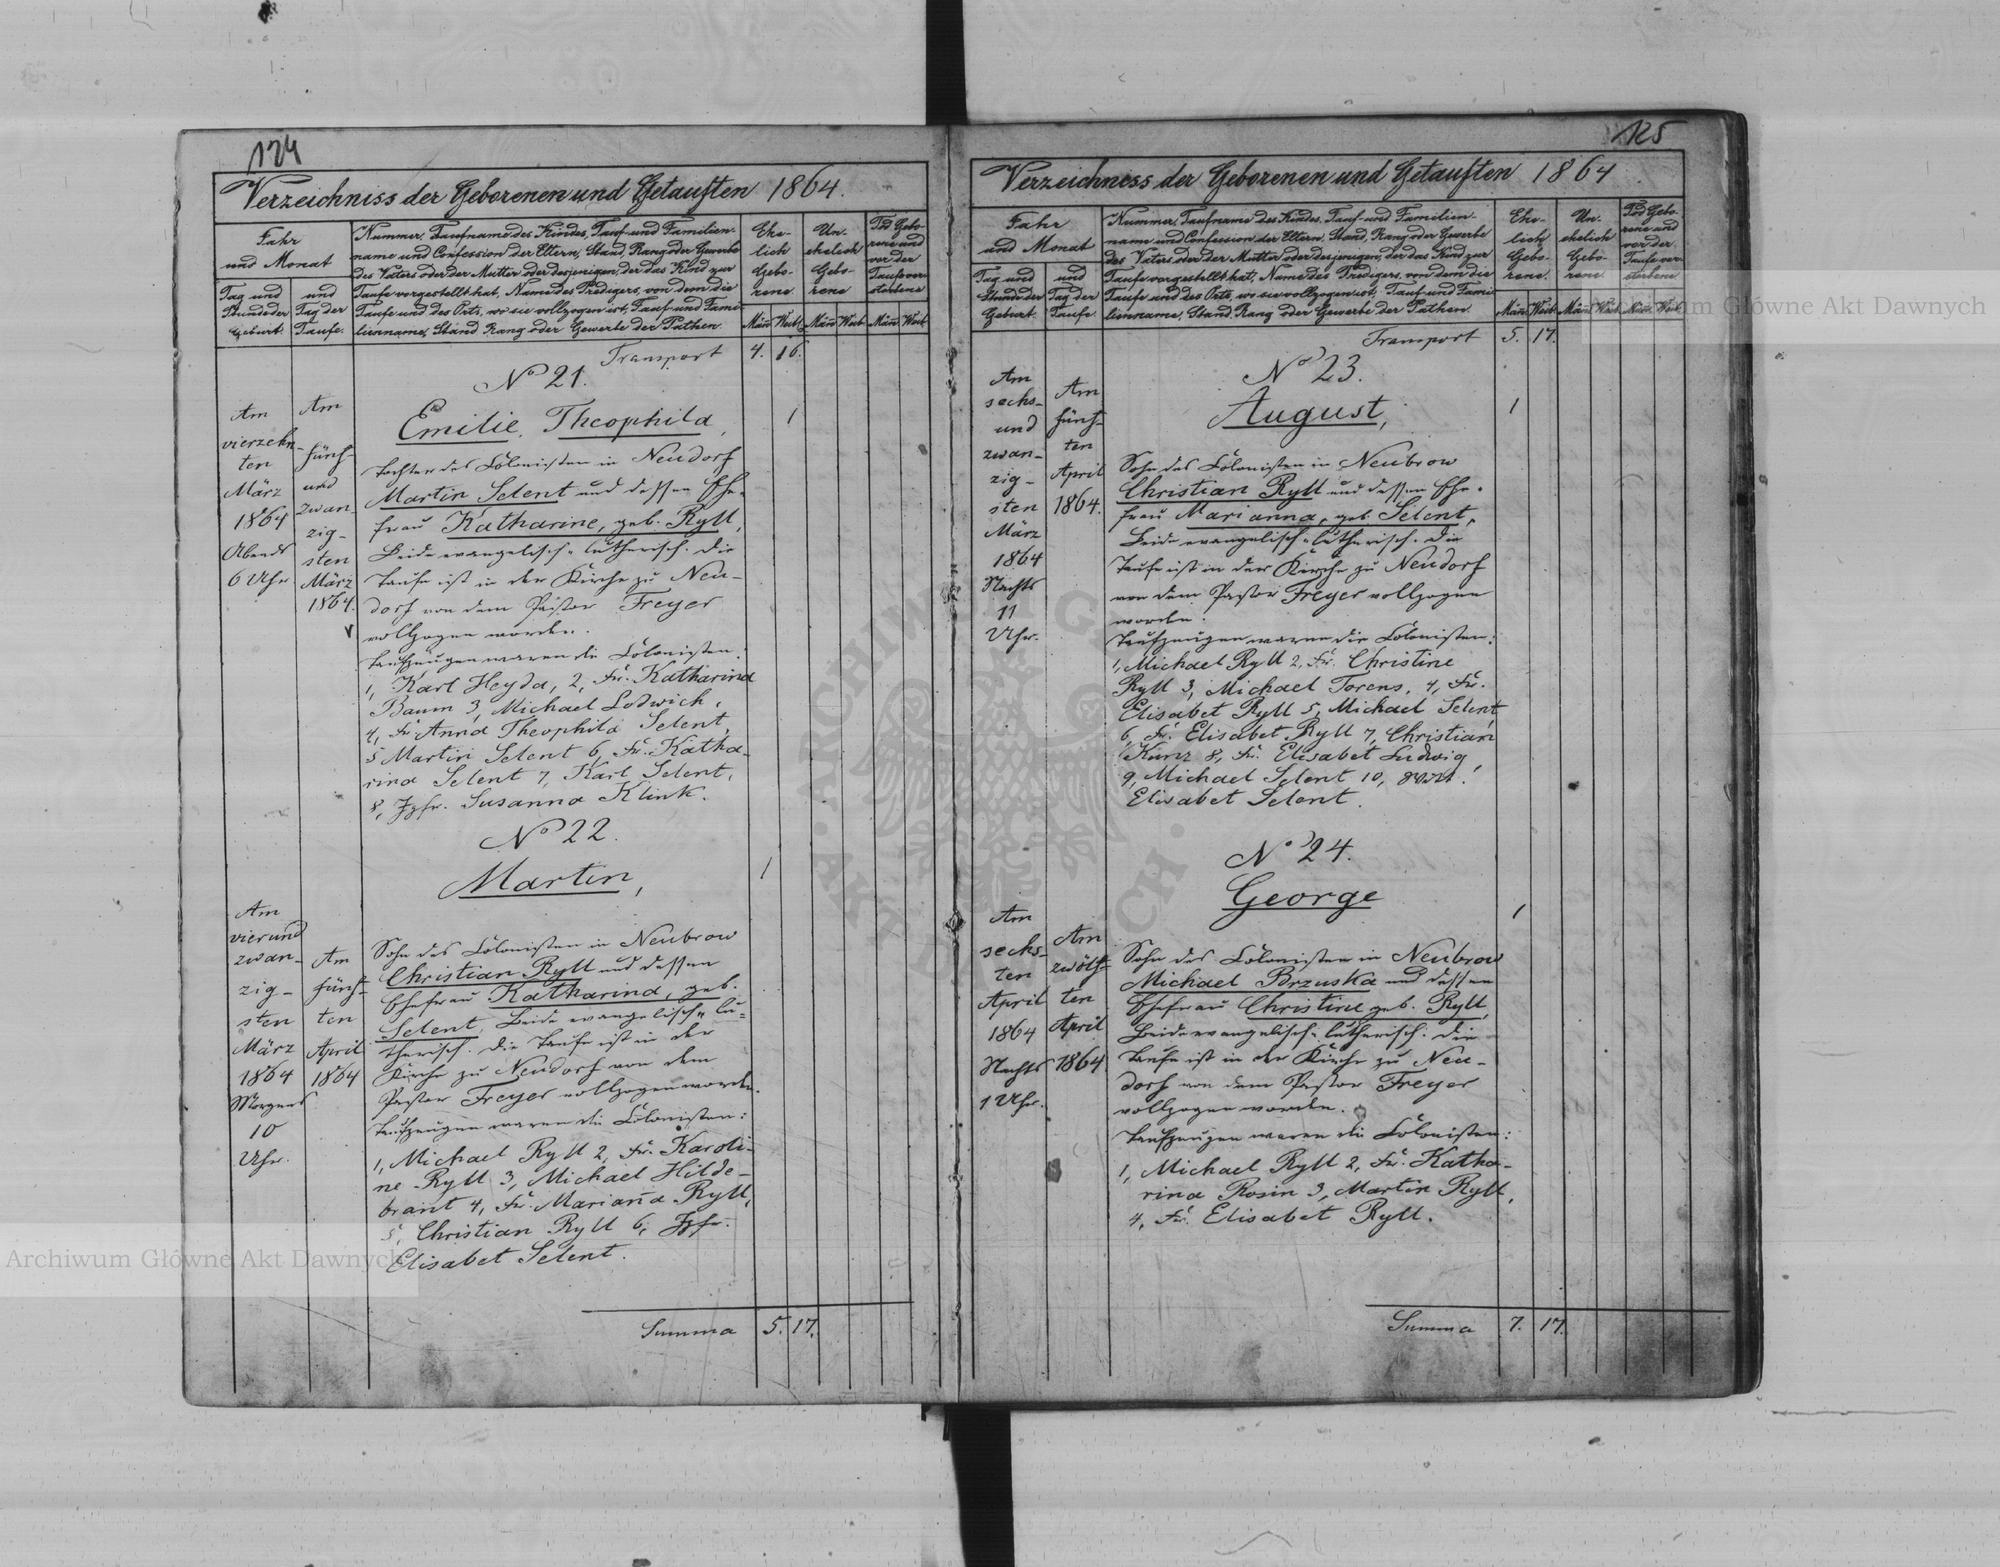 124
Verzeichniss der Geborenen und Getauften 1864.
Jahr
und Monat
Tag und
Stunde der
Geburt.
und
Tag der
Taufe.
Nummer, Taufname des Kindes, Tauf- und Familien-
name und Confession der Eltern, Stand, Rang oder Gewerbe
des Vaters oder der Mutter oder desjenigen, der das Kind zur
Taufe vorgestellt hat, Name des Predigers, von dem die
Taufe und des Orts, wo sie vollzogen ist, Tauf- und Fami-
lienname, Stand Rang oder Gewerbe der Pathen.
Ehe-
lich
Gebo-
rene
Un-
ehelich
Gebo-
rene
Tod Gebo-
rene und
vor der
Taufe ver-
storbene
Män Weib Män Weib Män Weib
Transport 4. 16.
No 21.
Emilie Theophila, 1
Am
vierzehn-
ten
März
1864
Abends
6 Uhr
Am
fünf-
und
zwan-
zig-
sten
März
1864.
Tochter des Colonisten in Neudorf
Martin Selent und dessen Ehe-
frau Katharine, geb. Ryll,
Beide evangelisch-lutherisch. Die
Taufe ist in der Kirche zu Neu-
dorf von dem Pastor Freyer
vollzogen worden.
Taufzeugen waren die Colonisten:
1, Karl Heyda, 2, Fr. Katharina
Baum 3, Michael Lodwich,
4, Fr. Anna Theophila Selent,
5 Martin Selent 6, Fr. Katha-
rina Selent 7, Karl Selent,
8, Jgfr. Susanna Klink.
No 22.
Martin, 1
Am
vierund
zwan-
zig-
sten
März
1864
Morgens
10
Uhr.
Am
fünf-
ten
April
1864
Sohn des Colonisten in Neubrow
Christian Ryll und dessen
Ehefrau Katharina, geb.
Selent, Beide evangelisch-lu-
therisch. Die Taufe ist in der
Kirche zu Neudorf von dem
Pastor Freyer vollzogen worden.
Taufzeugen waren die Colonisten:
1, Michael Ryll 2, Fr. Karoli-
ne Ryll 3, Michael Hilde-
brant 4, Fr. Marianna Ryll,
5, Christian Ryll 6, Jgfr.
Elisabet Selent.
Summa 5. 17.
125
Verzeichniss der Geborenen und Getauften 1864
Jahr
und Monat
Tag und
Stunde der
Geburt.
und
Tag der
Taufe
Nummer, Taufname des Kindes, Tauf- und Familien-
name und Confession der Eltern, Stand, Rang oder Gewerbe
des Vaters oder der Mutter oder desjenigen, der das Kind zur
Taufe vorgestellt hat, Name des Predigers, von dem die
Taufe und des Orts, wo sie vollzogen ist, Tauf- und Fami-
lienname, Stand, Rang oder Gewerbe der Pathen.
Ehe-
lich
Gebo-
rene.
Un-
ehelich
Gebo-
rene.
Tod Gebo-
rene und
vor der
Taufe ver-
storbene
Män Weib Män Weib Män Weib
Transport 5. 17.
No 23.
August, 1
Am
sechs-
und
zwan-
zig-
sten
März
1864
Nachts
11
Uhr.
Am
fünf-
ten
April
1864.
Sohn des Colonisten in Neubrow
Christian Ryll und dessen Ehe-
frau Marianna, geb. Selent,
Beide evangelisch-lutherisch. Die
Taufe ist in der Kirche zu Neudorf
von dem Pastor Freyer vollzogen
worden.
Taufzeugen waren die Colonisten:
1, Michael Ryll 2, Fr. Christine
Ryll 3, Michael Torens, 4, Fr.
Elisabet Ryll 5, Michael Selent,
6, Fr. Elisabet Ryll 7, Christian
Kunz 8, Fr. Elisabet Ludwig,
9, Michael Selent 10,
Elisabet Selent.
No 24.
George 1
Am
sechs-
ten
April
1864
Nachts
1 Uhr.
Am
zwölf-
ten
April
1864
Sohn des Colonisten in Neubrow
Michael Brzuska und dessen
Ehefrau Christine geb. Ryll,
Beide evangelisch-lutherisch. Die
Taufe ist in der Kirche zu Neu-
dorf von dem Pastor Freyer
vollzogen worden.
Taufzeugen waren die Colonisten:
1, Michael Ryll 2, Fr. Katha-
rina Rosin 3, Martin Ryll,
4, Fr. Elisabet Ryll.
Summa 7. 17.
Archiwum Główne Akt Dawnych
Archiwum Główne Akt Dawnych